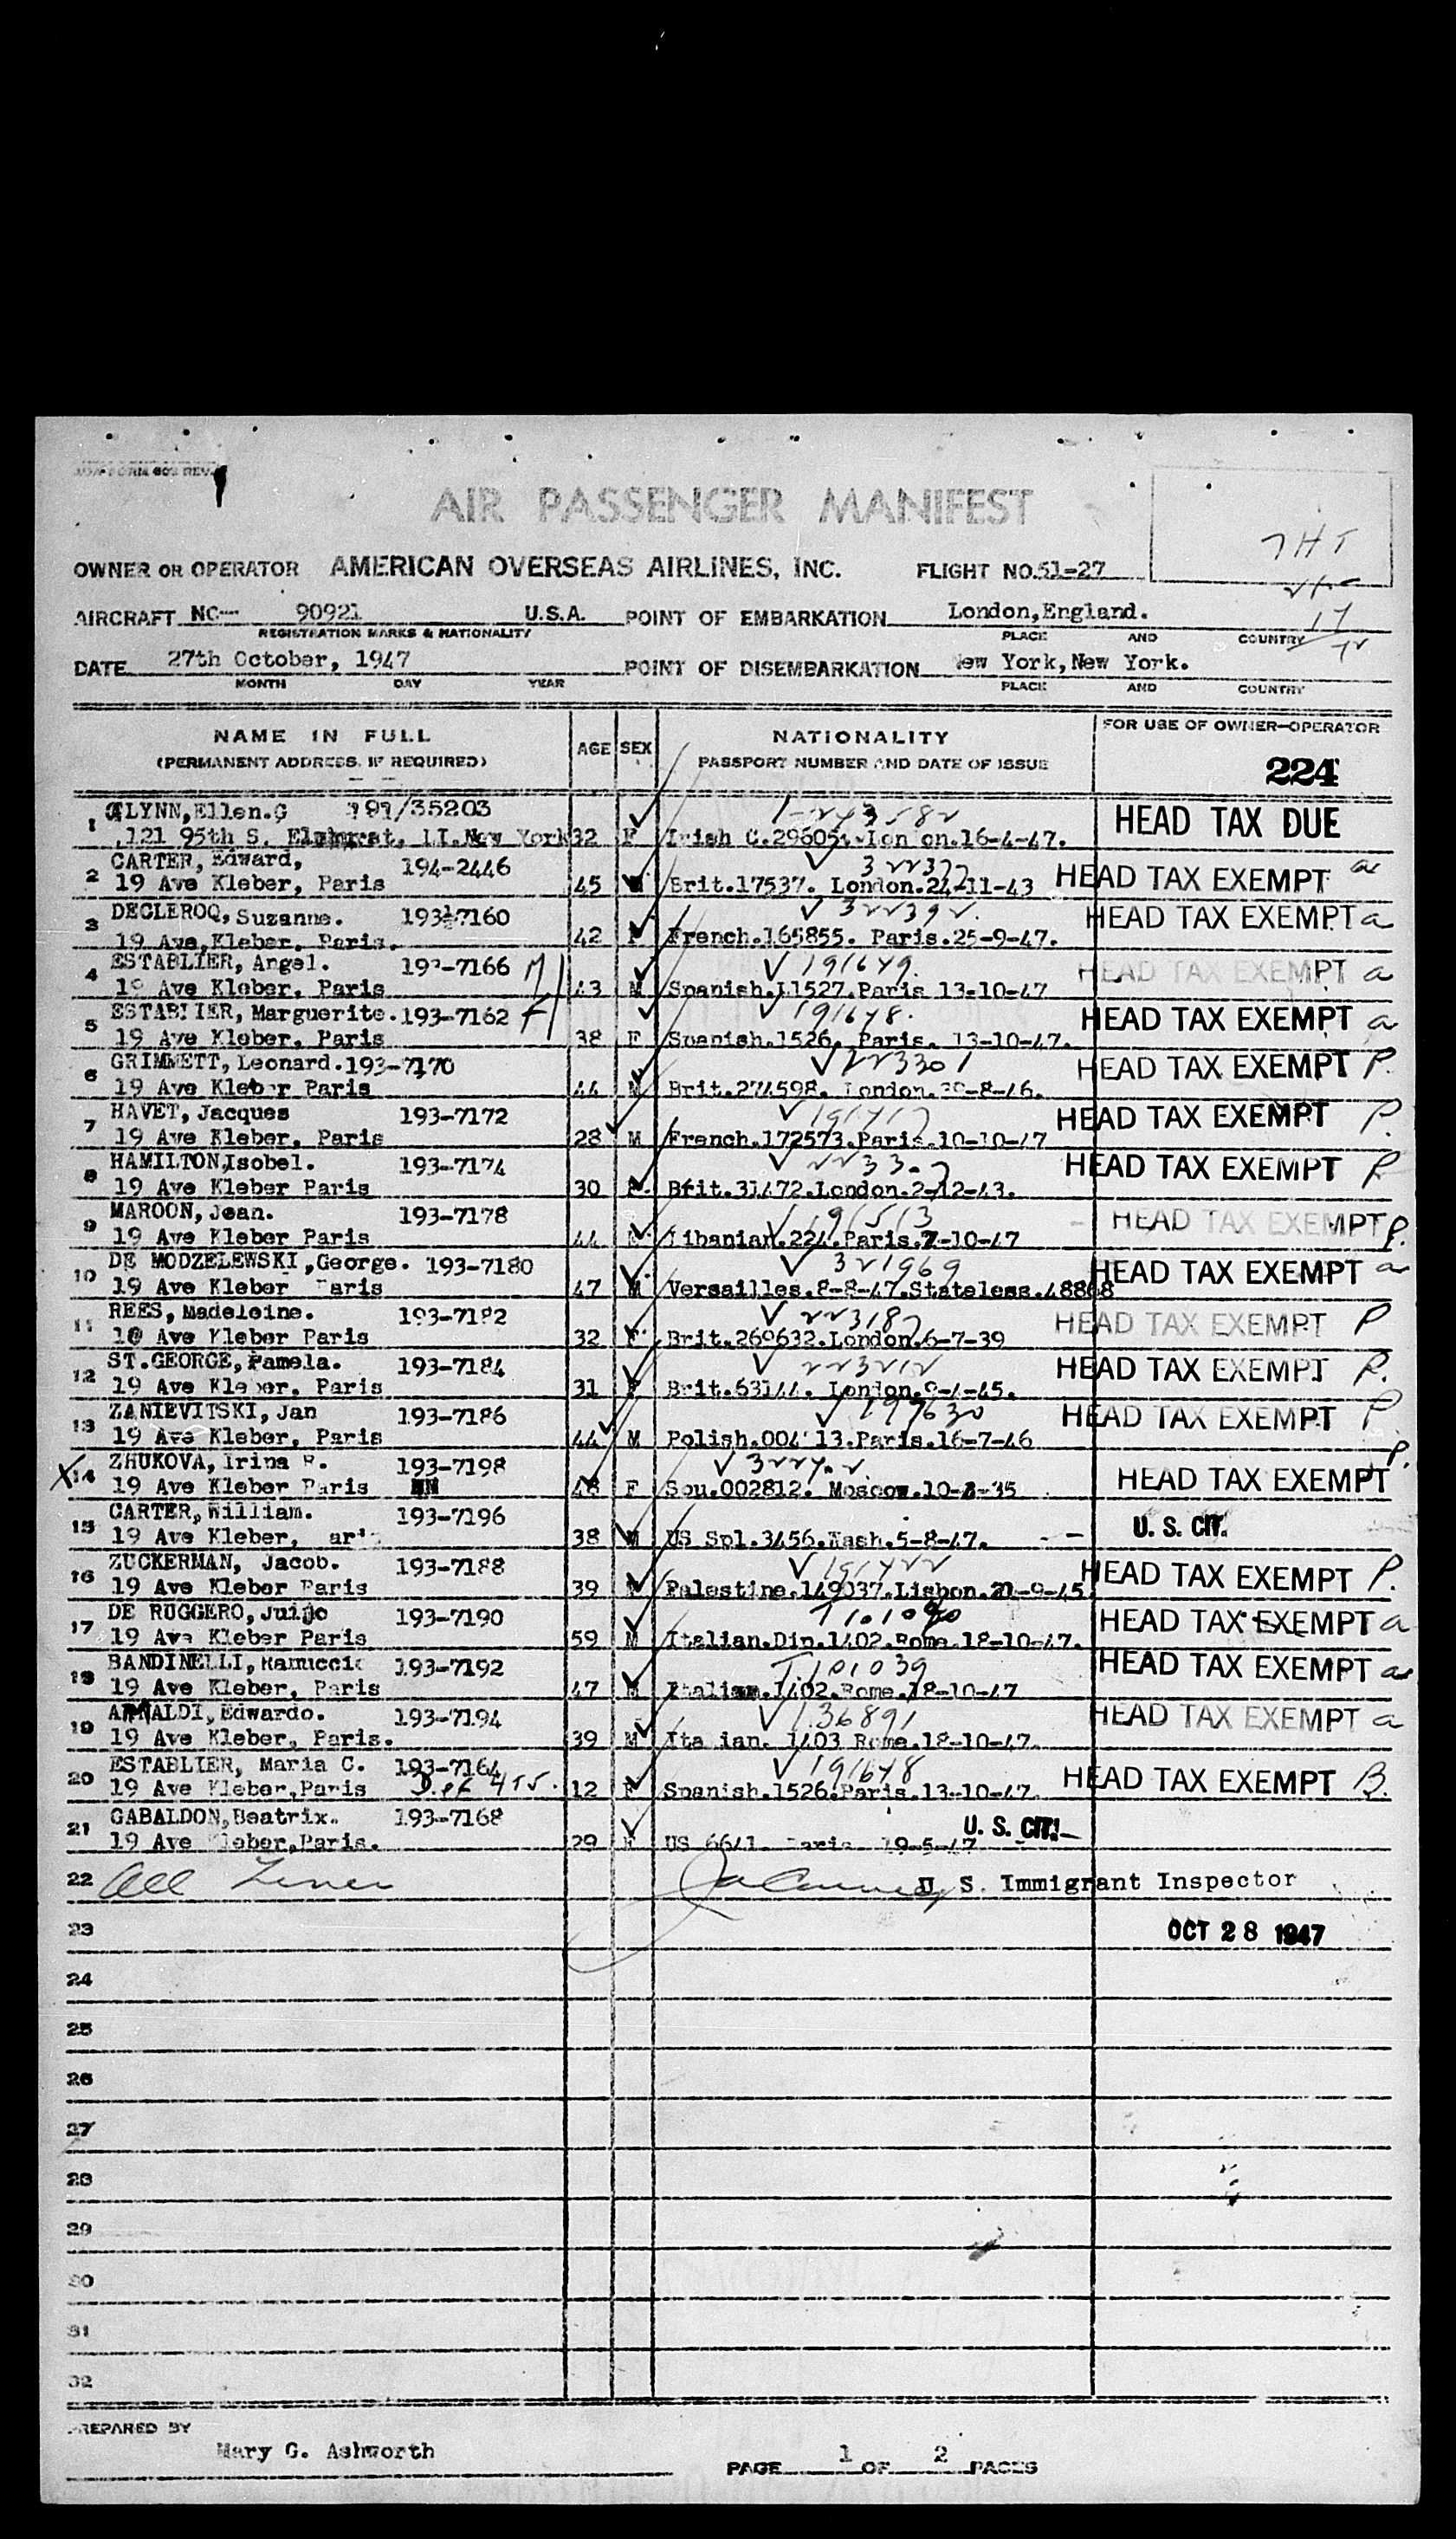 AIR PASSENGER MANIFEST
OWNER OR OPERATOR AMERICAN OVERSEAS AIRLINES, INC. FLIGHT NO. 51-27
AIRCRAFT NC— 90921 U.S.A. POINT OF EMBARKATION London,England.
REGISTRATION MARKS & NATIONALITY PLACE AND COUNTRY
DATE 27th October, 1947 POINT OF DISEMBARKATION New York,New York.
MONTH DAY YEAR PLACE AND COUNTRY
NAME IN FULL AGE SEX NATIONALITY FOR USE OF OWNER-OPERATOR
(PERMANENT ADDRESS, IF REQUIRED) PASSPORT NUMBER AND DATE OF ISSUE 224
1 GLYNN,Ellen.G /35203 HEAD TAX DUE
121 95th S. New York 32 F Irish London.16-4-47.
2 CARTER, Edward, 194-2446 HEAD TAX EXEMPT
19 Ave Kleber, Paris 45 Brit.17537. London.24-11-43
3 DECLEROQ,Suzanne. 193-7160 HEAD TAX EXEMPT a
19 Ave,Kleber, Paris. 42 F French.165855. Paris.25-9-47.
4 ESTABLIER, Angel. 193-7166 M HEAD TAX EXEMPT a
19 Ave Kleber, Paris 43 M Spanish.11527.Paris 13-10-47
5 ESTABLIER, Marguerite.193-7162 F HEAD TAX EXEMPT a
19 Ave Kleber, Paris 38 F Spanish.1526. Paris. 13-10-47.
6 GRIMMETT, Leonard.193-7170 HEAD TAX EXEMPT P.
19 Ave Kleber Paris 44 M Brit.274598. London. -8-46.
7 HAVET, Jacques 193-7172 HEAD TAX EXEMPT P.
19 Ave Kleber, Paris 28 M French.172573.Paris.10-10-47
8 HAMILTON,Isobel. 193-7174 HEAD TAX EXEMPT P
19 Ave Kleber Paris 30 F. Brit.31472.London.2-12-43.
9 MAROON, Jean. 193-7178 191513 HEAD TAX EXEMPT P.
19 Ave Kleber Paris 44 Libanian.224.Paris.7-10-47
10 DE MODZELEWSKI,George. 193-7180 321969 HEAD TAX EXEMPT
19 Ave Kleber Paris 47 M Versailles.8-8-47.Stateless.48868
11 REES, Madeleine. 193-7182 HEAD TAX EXEMPT P
19 Ave Kleber Paris 32 F. Brit.269632.London.6-7-39
12 ST.GEORGE,Pamela. 193-7184 HEAD TAX EXEMPT P.
19 Ave Kleber, Paris 31 F Brit.63144. London.9-4-45.
13 ZANIEVITSKI, Jan 193-7186 199630 HEAD TAX EXEMPT P
19 Ave Kleber, Paris 44 M Polish. Paris.16-7-46
X14 ZHUKOVA, Irina R. 193-7198 P.
19 Ave Kleber Paris 48 F Sou.002812. Moscow.10-8-35 HEAD TAX EXEMPT
15 CARTER, William. 193-7196 U. S. CIT.
19 Ave Kleber, 38 M US Spl.3456.Wash.5-8-47.
16 ZUCKERMAN, Jacob. 193-7188 HEAD TAX EXEMPT P.
19 Ave Kleber Paris 39 M Palestine.149037.Lisbon.21-9-45
17 DE RUGGERO, 193-7190 HEAD TAX EXEMPT a
19 Ave Kleber Paris 59 M Italian.Dip.1402.Rome.18-10-47.
18 BANDINELLI, Ranuccio 193-7192 101039 HEAD TAX EXEMPT
19 Ave Kleber, Paris 47 M Italian.1402.Rome.18-10-47
19 ARNALDI, Edwardo. 193-7194 136891 HEAD TAX EXEMPT a
19 Ave Kleber, Paris. 39 M Italian. 1403 Rome.18-10-47.
20 ESTABLIER, Maria C. 193-7164 191648 HEAD TAX EXEMPT B.
19 Ave Kleber,Paris 12 F Spanish.1526.Paris.13-10-47.
21 GABALDON,Beatrix. 193-7168 U. S. CIT.
19 Ave Kleber,Paris. 29 F US 6641. Paris 19-5-47
22 All U. S. Immigrant Inspector
23 OCT 28 1947
24
25
26
27
28
29
30
31
32
PREPARED BY
Mary G. Ashworth
PAGE 1 OF 2 PAGES